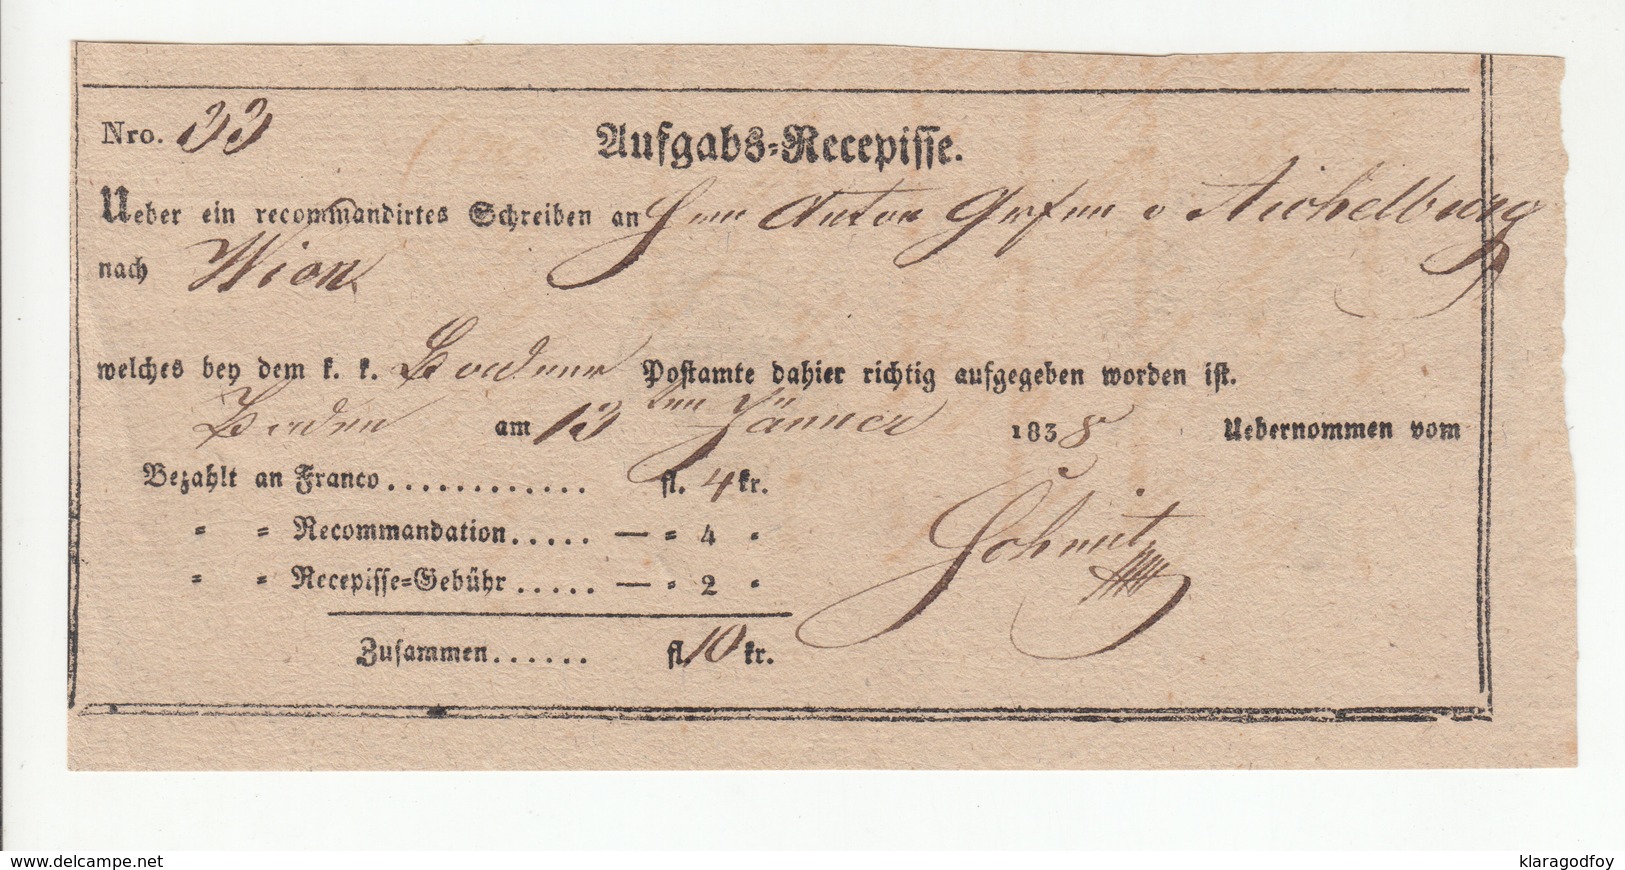 Nro. 33
Aufgabs-Recepisse.
Ueber ein recommandirtes Schreiben an Herrn Anton Grafen v Aichelburg
nach Wien
welches bey dem k. k. Badner Postamte dahier richtig aufgegeben worden ist.
Baden am 13ten Jänner 1838 Uebernommen vom
Bezahlt an Franco............ fl. 4 kr.
" " Recommandation..... — " 4 "
" " Recepisse-Gebühr..... — " 2 "
Schmit
Zusammen...... fl. 10 kr.
www.delcampe.net
klaragodfoy